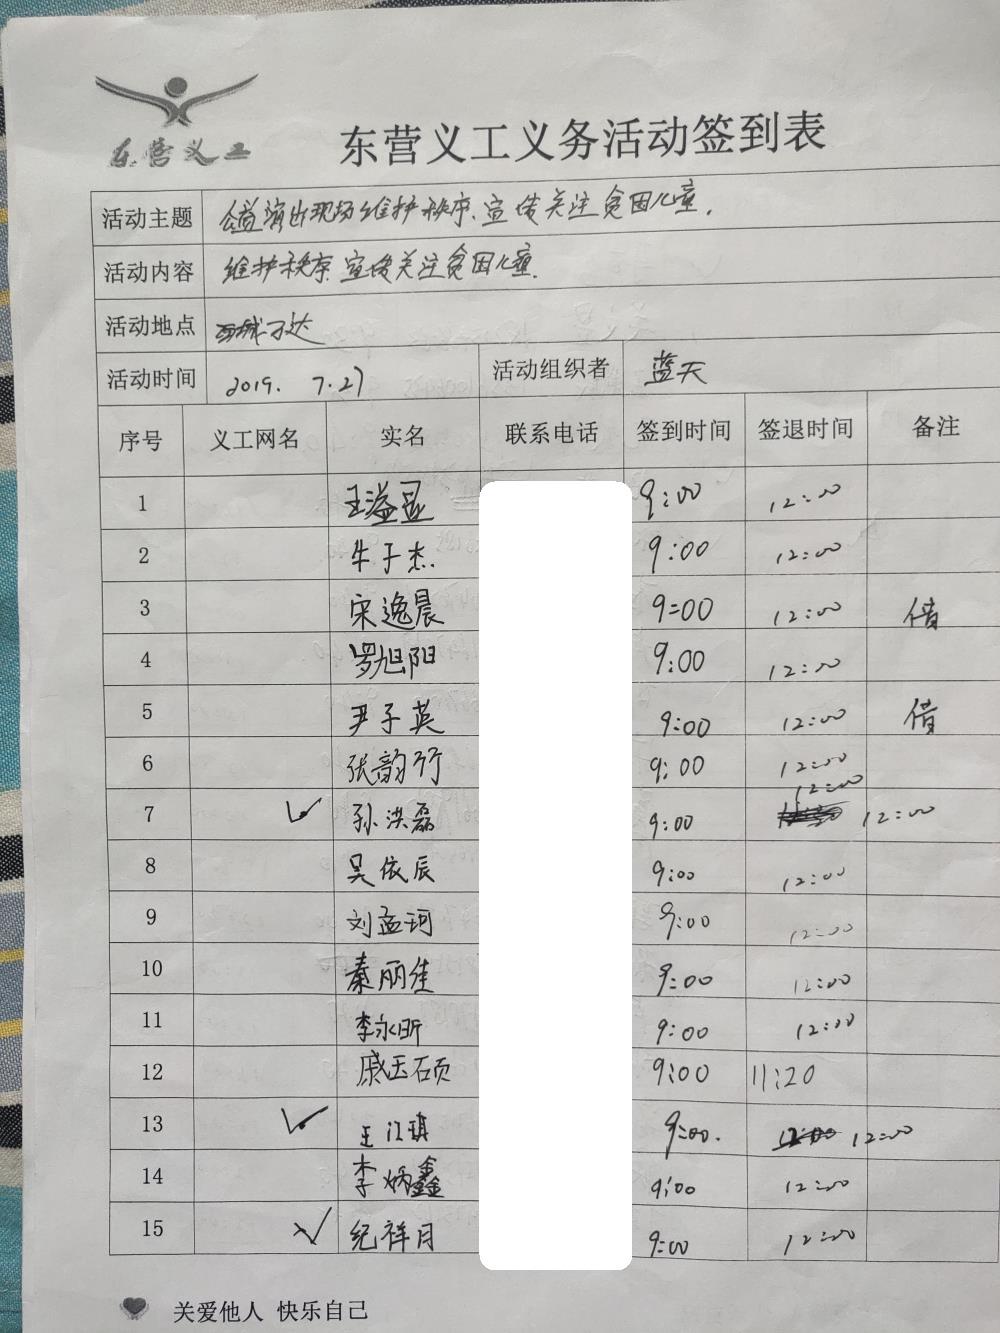 东营义工
东营义工义务活动签到表
活动主题 公益演出现场维护秩序、宣传关注贫困儿童.
活动内容 维护秩序.宣传关注贫困儿童.
活动地点 西城万达
活动时间 2019. 7.27 活动组织者 蓝天
序号 义工网名 实名 联系电话 签到时间 签退时间 备注
1 王溢显 9:00 12:00
2 牛子杰 9:00 12:00
3 宋逸晨 9:00 12:00 借
4 罗旭阳 9:00 12:00
5 尹子英 9:00 12:00 借
6 张韵行 9:00 12:00
12:00
7 ✓ 孙洪磊 9:00 12:00
8 吴依辰 9:00 12:00
9 刘孟珂 9:00 12:00
10 秦丽佳 9:00 12:00
11 李永昕 9:00 12:00
12 戚玉硕 9:00 11:20
13 ✓ 王江琪 9:00. 12:00 12:00
14 李炳鑫 9:00 12:00
15 ✓ 纪祥月 9:00 12:00
关爱他人 快乐自己